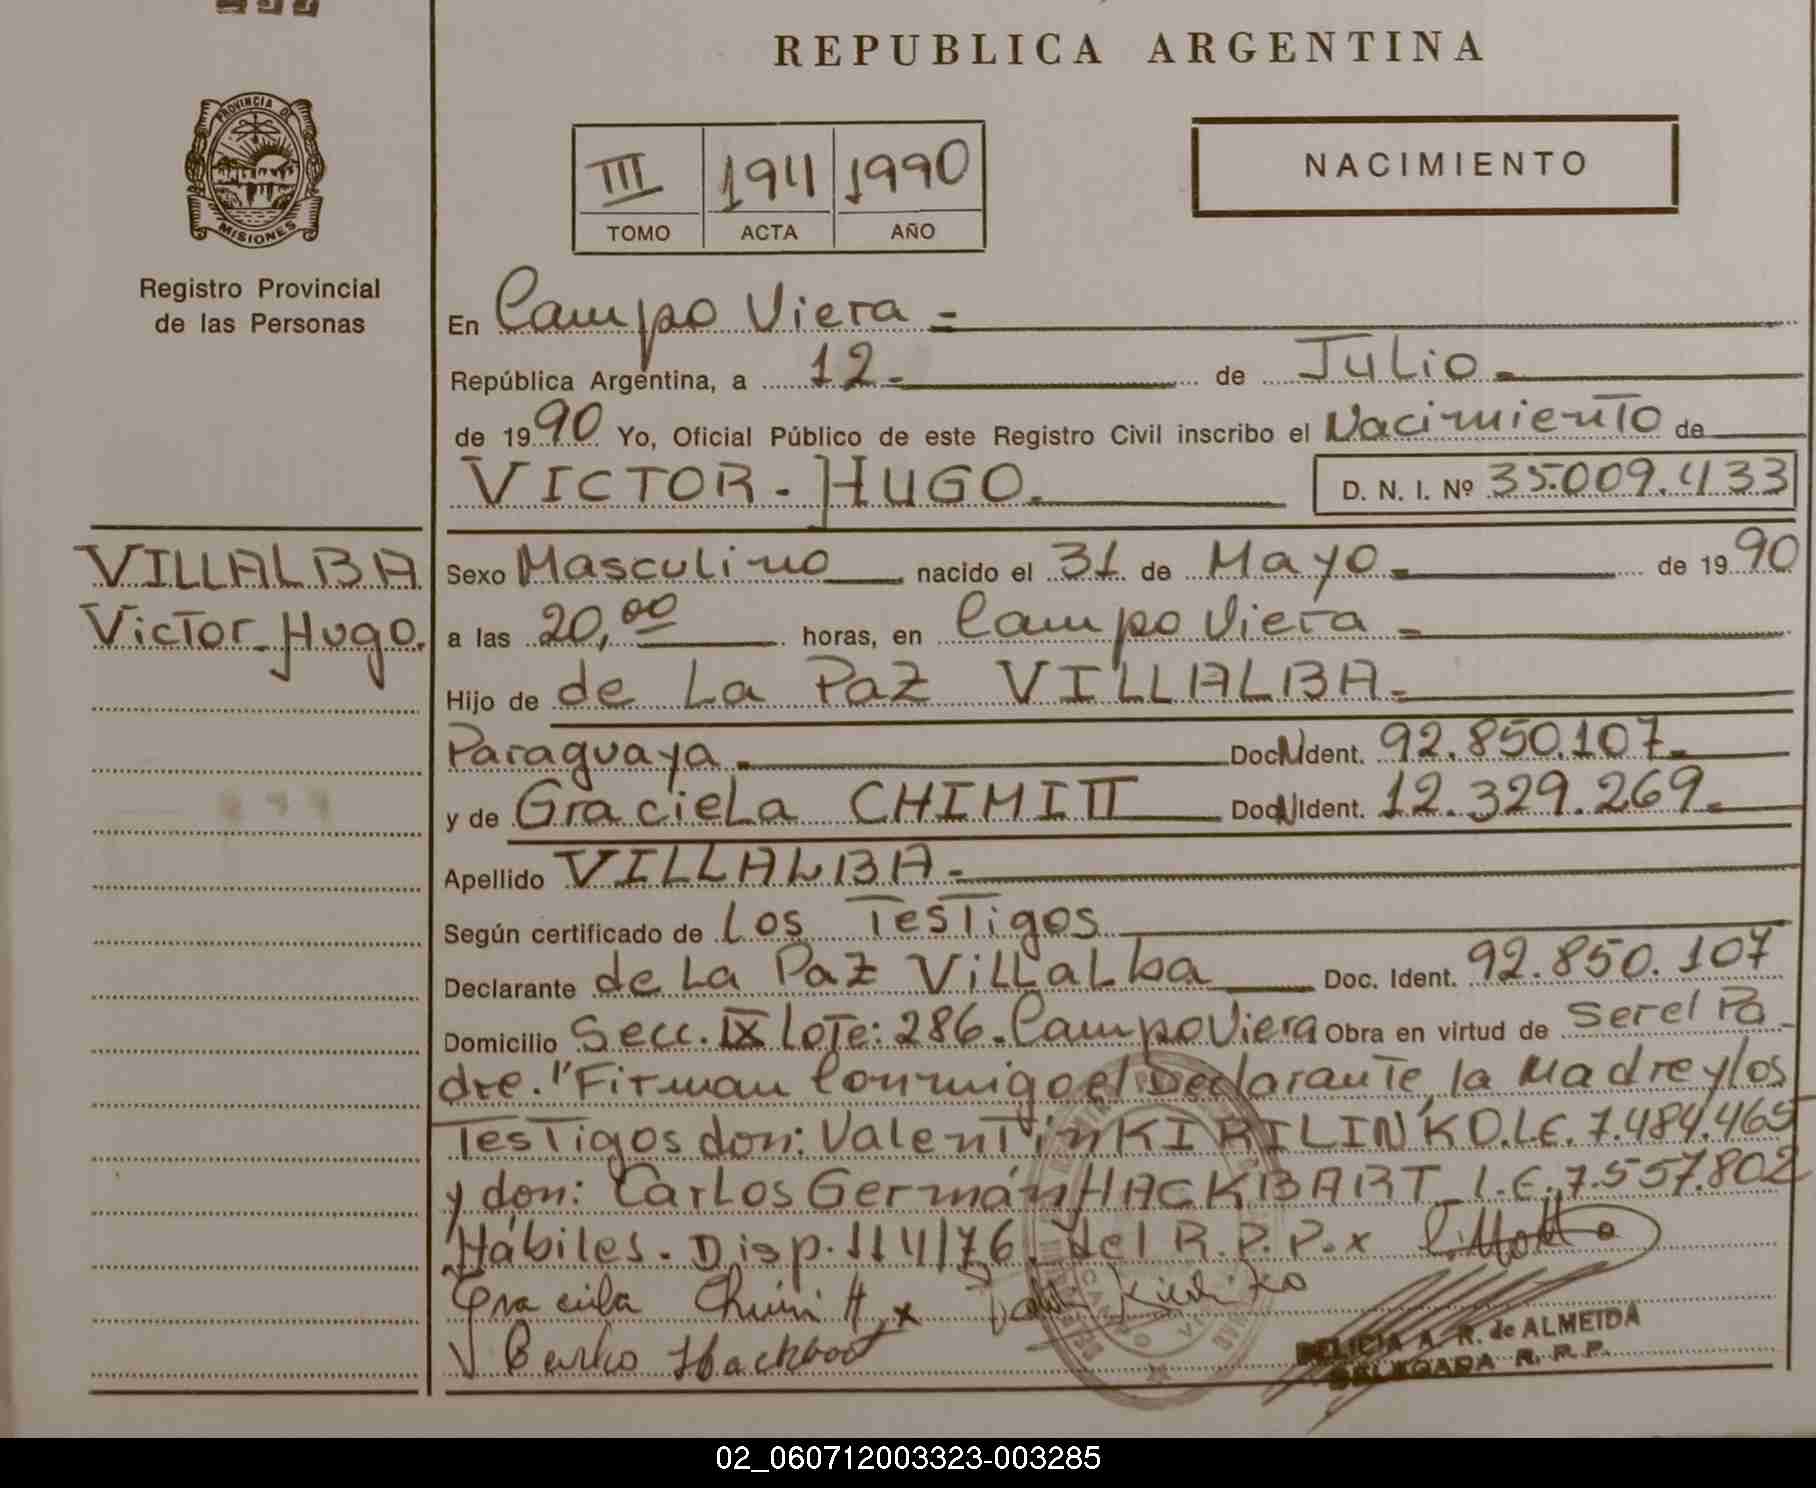 REPUBLICA ARGENTINA
PROVINCIA DE
MISIONES
Registro Provincial
de las Personas
III 1941 1990
TOMO ACTA AÑO
NACIMIENTO
En Campo Viera =
República Argentina, a 12.- de Julio.-
de 1990 Yo, Oficial Público de este Registro Civil inscribo el Nacimiento de
VICTOR - HUGO.- D. N. I. Nº 35.009.433
VILLALBA
Victor Hugo.
Sexo Masculino nacido el 31 de Mayo.- de 1990
a las 20,00 horas, en Campo Viera =
Hijo de de La Paz VILLALBA.-
Paraguaya.- Doc.N Ident. 92.850.107.-
y de Graciela CHIMITT Doc.N Ident. 12.329.269.-
Apellido VILLALBA.-
Según certificado de Los Testigos
Declarante de La Paz Villalba Doc. Ident. 92.850.107
Domicilio Secc. IX Lote: 286. Campo Viera Obra en virtud de Ser el Pa-
dre."Firman Conmigo el Declarante, la Madre y los
Testigos don: Valentin KIRILINKO.L.E. 7.484.465
y don: Carlos Germán HACKBART L.E. 7.557.802
Hábiles. Disp. 114/76. del R.P.P. x
Graciela Chimitt x
Carlos Hackbart
DELICIA A. R. de ALMEIDA
DELEGADA R. P. P.
02_060712003323-003285